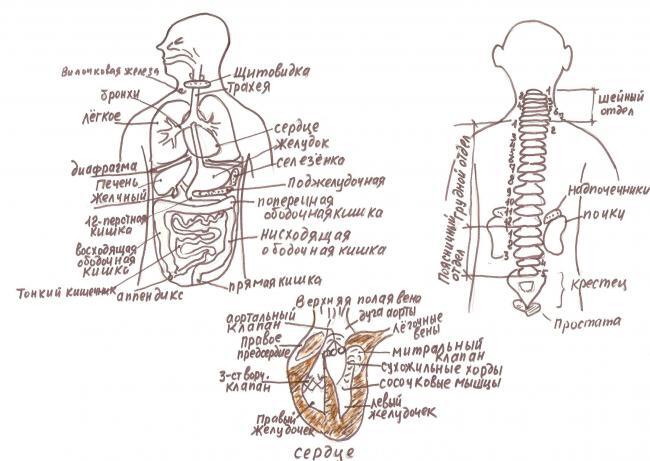 Вилочковая железа
бронхи
лёгкое
диафрагма
Печень
Желчный
12-перстная
кишка
восходящая
ободочная
кишка
Тонкий кишечник
аппендикс
Щитовидка
трахея
сердце
желудок
селезёнка
Поджелудочная
поперечная
ободочная кишка
нисходящая
ободочная кишка
прямая кишка
Шейный
отдел
Грудной отдел
Поясничный
отдел
Надпочечники
почки
Крестец
Простата
Верхняя полая вена
дуга аорты
аортальный
клапан
правое
предсердие
3-створч.
клапан
Правый
желудочек
лёгочные
вены
митральный
клапан
сухожильные хорды
сосочковые мышцы
левый
желудочек
сердце